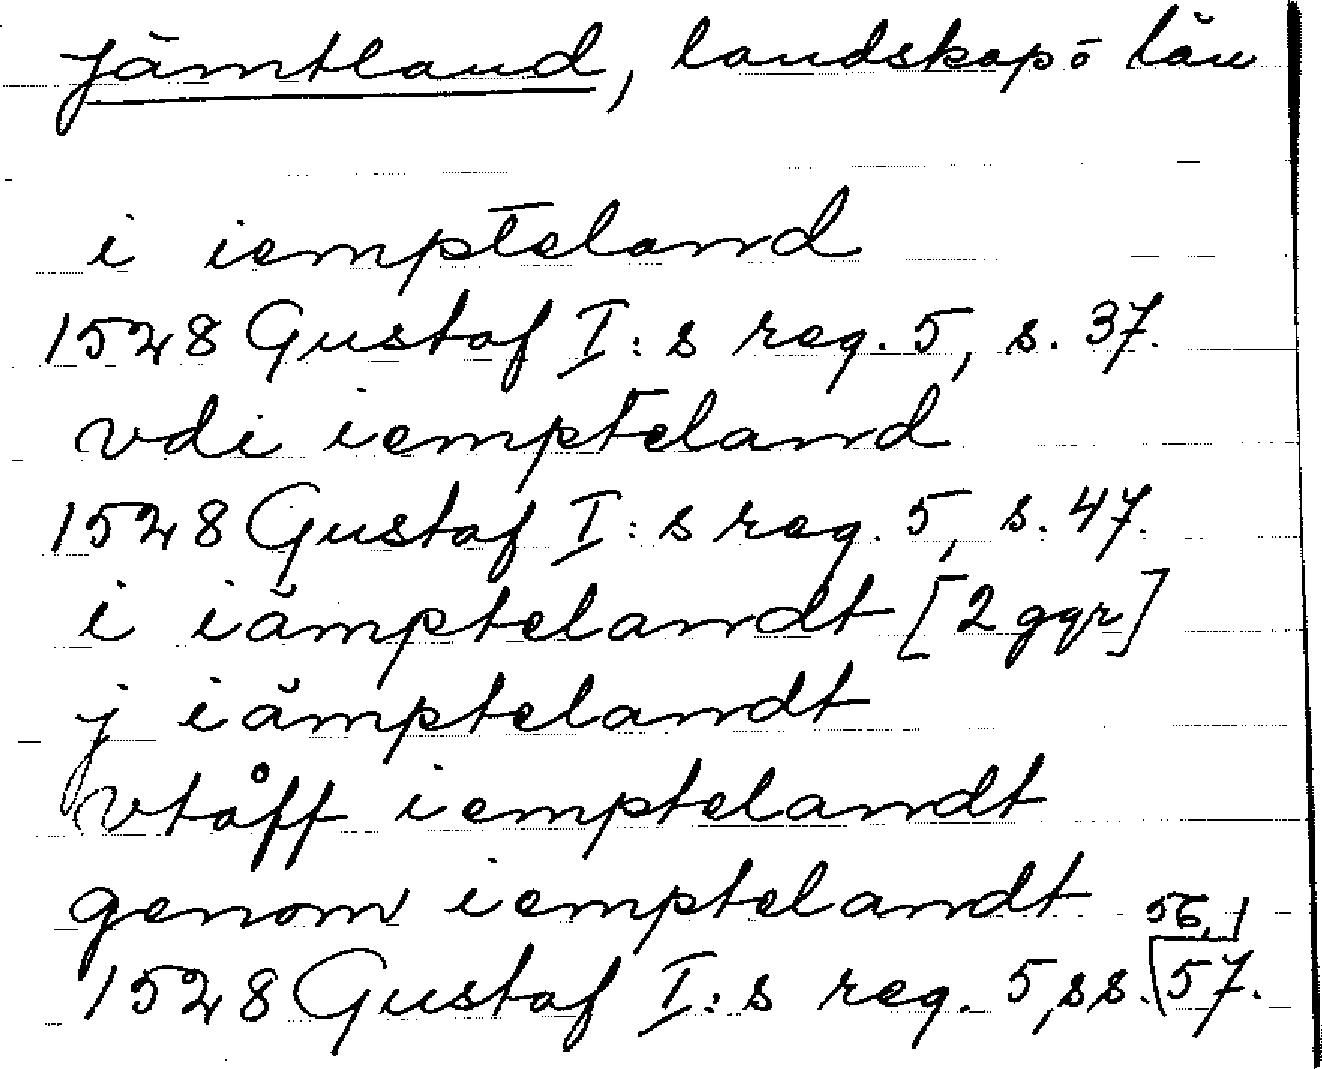 Jämtland, landskap o län
i iempteland
1528 Gustaf I:s reg. 5, s. 37.
vdi iempteland
1528 Gustaf I:s reg. 5, s. 47.
i iämptelandt [2 ggr]
j iämptelandt
vtåff iemptelandt
genom iemptelandt
1528 Gustaf I:s reg. 5, ss. 56, 57.